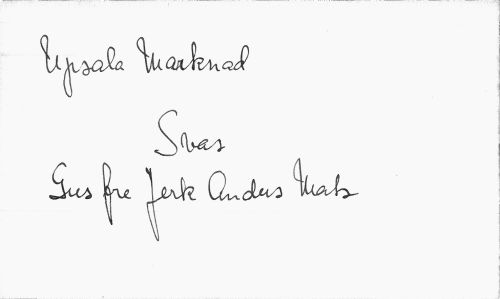 Upsala Marknad
Svas
Gus fre Jerk Anders Mats